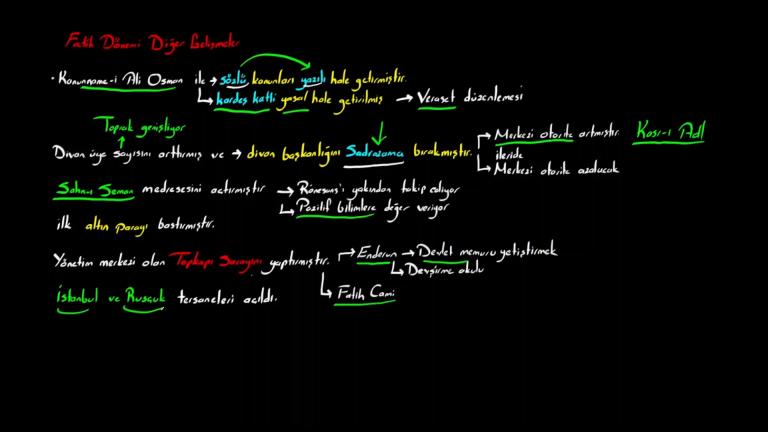 Fatih Dönemi Diğer Gelişmeler
• Kanunname-i Ali Osman ile → sözlü kanunları yazılı hale getirmiştir.
↳ kardeş katli yasal hale getirilmiş → Veraset düzenlemesi
Toprak genişliyor
Divan üye sayısını arttırmış ve → divan başkanlığını Sadrazama bırakmıştır.
→ Merkezi otorite artmıştır. Kasr-ı Adl
ileride
↳ Merkezi otorite azalacak
Sahn-ı Seman medresesini açtırmıştır → Rönesans'ı yakından takip ediyor
↳ Pozitif bilimlere değer veriyor
ilk altın parayı bastırmıştır.
Yönetim merkezi olan Topkapı Sarayını yaptırmıştır. → Enderun → Devlet memuru yetiştirmek
↳ Devşirme okulu
↳ Fatih Cami
İstanbul ve Rusçuk tersaneleri açıldı.